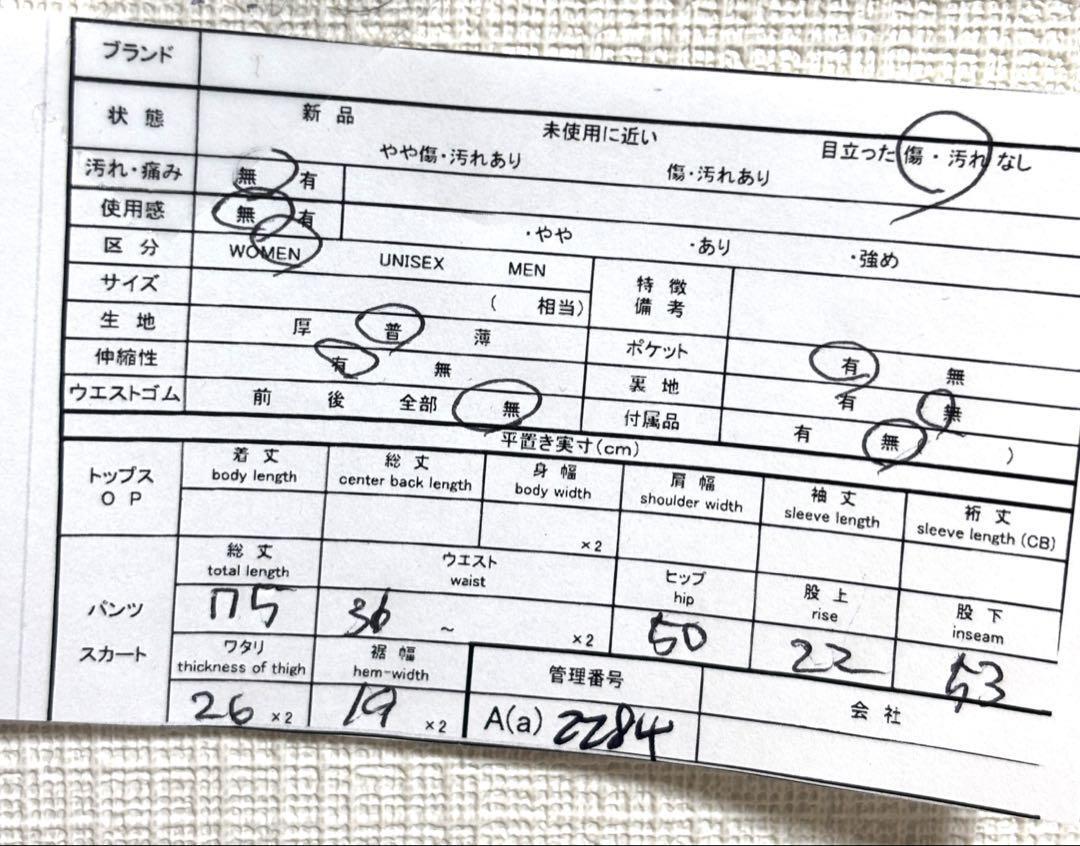 ブランド
状態 新品 未使用に近い 目立った傷・汚れなし
やや傷・汚れあり 傷・汚れあり
汚れ・痛み 無 有
使用感 無 有 ・やや ・あり ・強め
区分 WOMEN UNISEX MEN
サイズ ( 相当)
特徴
備考
生地 厚 普 薄
ポケット 有 無
伸縮性 有 無
裏地 有 無
ウエストゴム 前 後 全部 無
付属品 有 無 )
平置き実寸(cm)
トップス
OP
着丈 総丈 身幅 肩幅 袖丈 裄丈
body length center back length body width shoulder width sleeve length sleeve length (CB)
×2
パンツ
スカート
総丈 ウエスト ヒップ 股上 股下
total length waist hip rise inseam
75 36 ~ ×2 50 22 53
ワタリ 裾幅 管理番号 会社
thickness of thigh hem-width
26 ×2 19 ×2 A(a) 2284